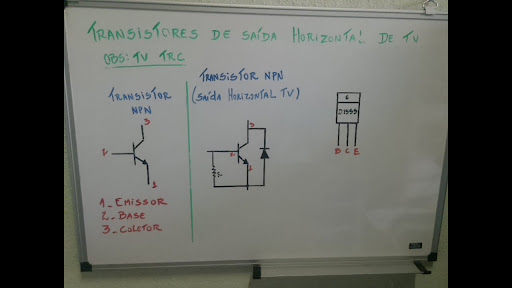 TRANSISTORES DE SAÍDA HORIZONTAL DE TV
OBS: TV TRC
TRANSISTOR
NPN
3
2
1
1_EMISSOR
2_BASE
3_COLETOR
TRANSISTOR NPN
(SAÍDA HORIZONTAL TV)
3
2
1
D1555
B C E